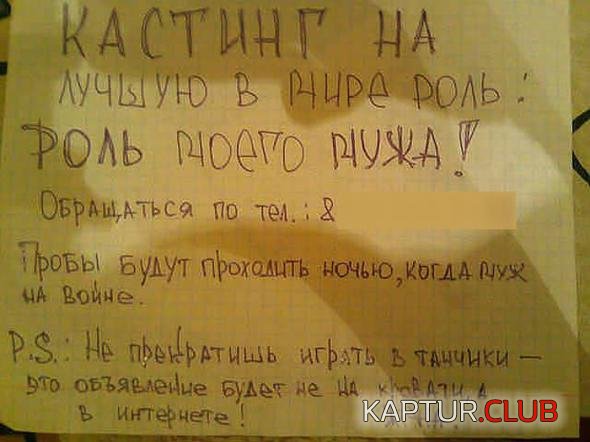 КАСТИНГ НА
ЛУЧШУЮ В МИРЕ РОЛЬ:
РОЛЬ МОЕГО МУЖА!
ОБРАЩАТЬСЯ ПО ТЕЛ.: 8
ПРОБЫ БУДУТ ПРОХОДИТЬ НОЧЬЮ, КОГДА МУЖ
НА ВОЙНЕ.
P.S.: НЕ ПРЕКРАТИШЬ ИГРАТЬ В ТАНЧИКИ –
ЭТО ОБЪЯВЛЕНИЕ БУДЕТ НЕ НА КРОВАТИ, А
В ИНТЕРНЕТЕ!
KAPTUR.CLUB